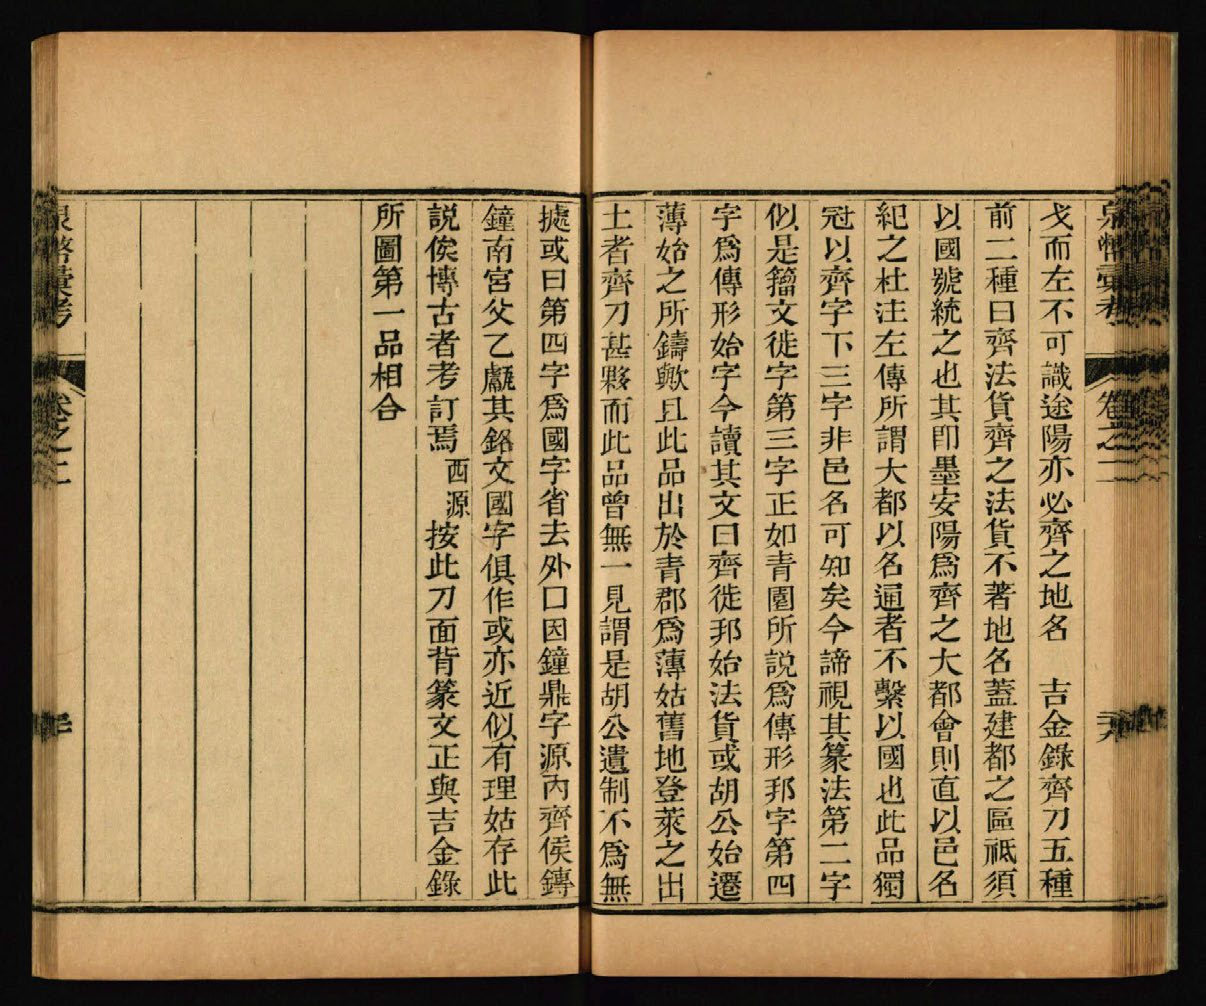 戈而左不可識途陽亦必齊之地名　吉金錄齊刀五種
前二種曰齊法貨齊之法貨不著地名蓋建都之區祗須
以國號統之也其卽墨安陽爲齊之大都會則直以邑名
紀之杜注左傳所謂大都以名通者不繫以國也此品獨
冠以齊字下三字非邑名可知矣今諦視其篆法第二字
似是籀文徙字第三字正如青園所說爲傳形邦字第四
字爲傳形始字今讀其文曰齊徙邦始法貨或胡公始遷
薄始之所鑄歟且此品出於青郡爲薄姑舊地登萊之出
土者齊刀甚夥而此品曾無一見謂是胡公遺制不爲無
據或曰第四字爲國字省去外囗因鐘鼎字源內齊侯鎛
鐘南宮父乙甗其銘文國字俱作或亦近似有理姑存此
說俟博古者考訂焉　西源按此刀面背篆文正與吉金錄
所圖第一品相合
卷之二